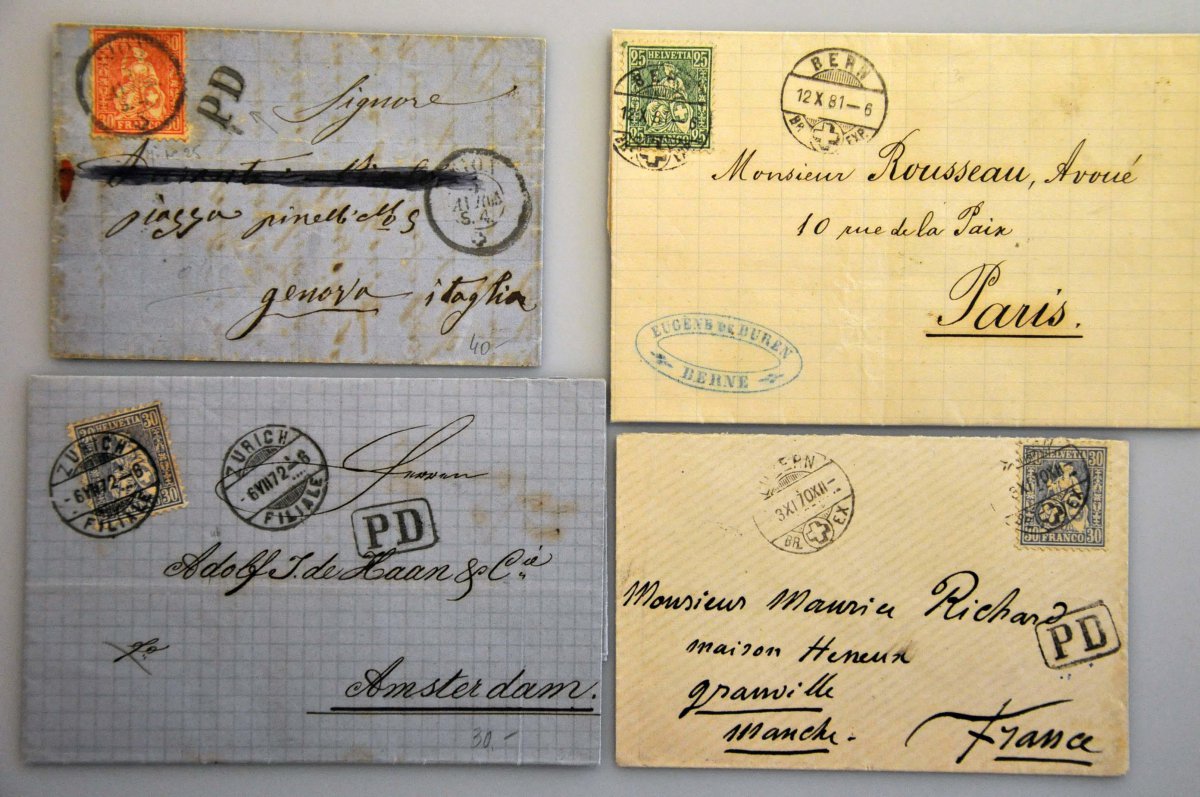 30
FRANCO
PD
Signore
piazza pinelli No 5
genova itaglia
S. 4.
40-
25 HELVETIA 25
25 FRANCO 25
BERN
12 X 81 — 6
BR. EXP.
BERN
Monsieur Rousseau, Avoué
10 rue de la Paix
Paris.
EUGENE DE BUREN
BERNE
30 HELVETIA 30
30
ZURICH
6 VII 72 – 6
FILIALE
ZURICH
6 VII 72 – 6
FILIALE
Herren
PD
Adolf J. de Haan & Cie
Amsterdam.
30.-
LUZERN
3 XI 70 XII –
BR. EX.
HELVETIA 30
30 FRANCO 30
70 XII
EX.
Monsieur Maurice Richard
PD
maison Heneux
granville
manche.
France